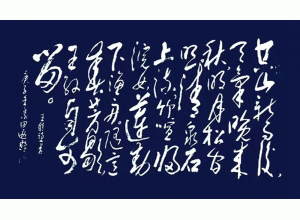 空山新雨後
天氣晚來
秋明月松間
照清泉石
上流竹喧歸
浣女蓮動
下漁舟隨意
春芳歇
王孫自可
留